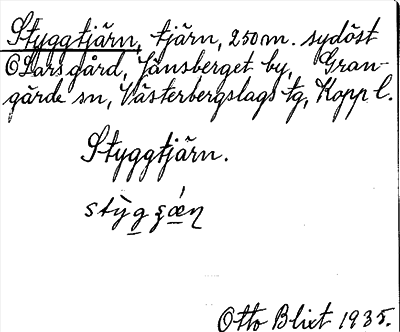 Styggtjärn, tjärn, 250 m. sydöst
Lars gård, Jänsberget by, Gran-
gärde sn, Västerbergslags tg, Kopp l.
Styggtjärn.
Otto Blixt 1935.